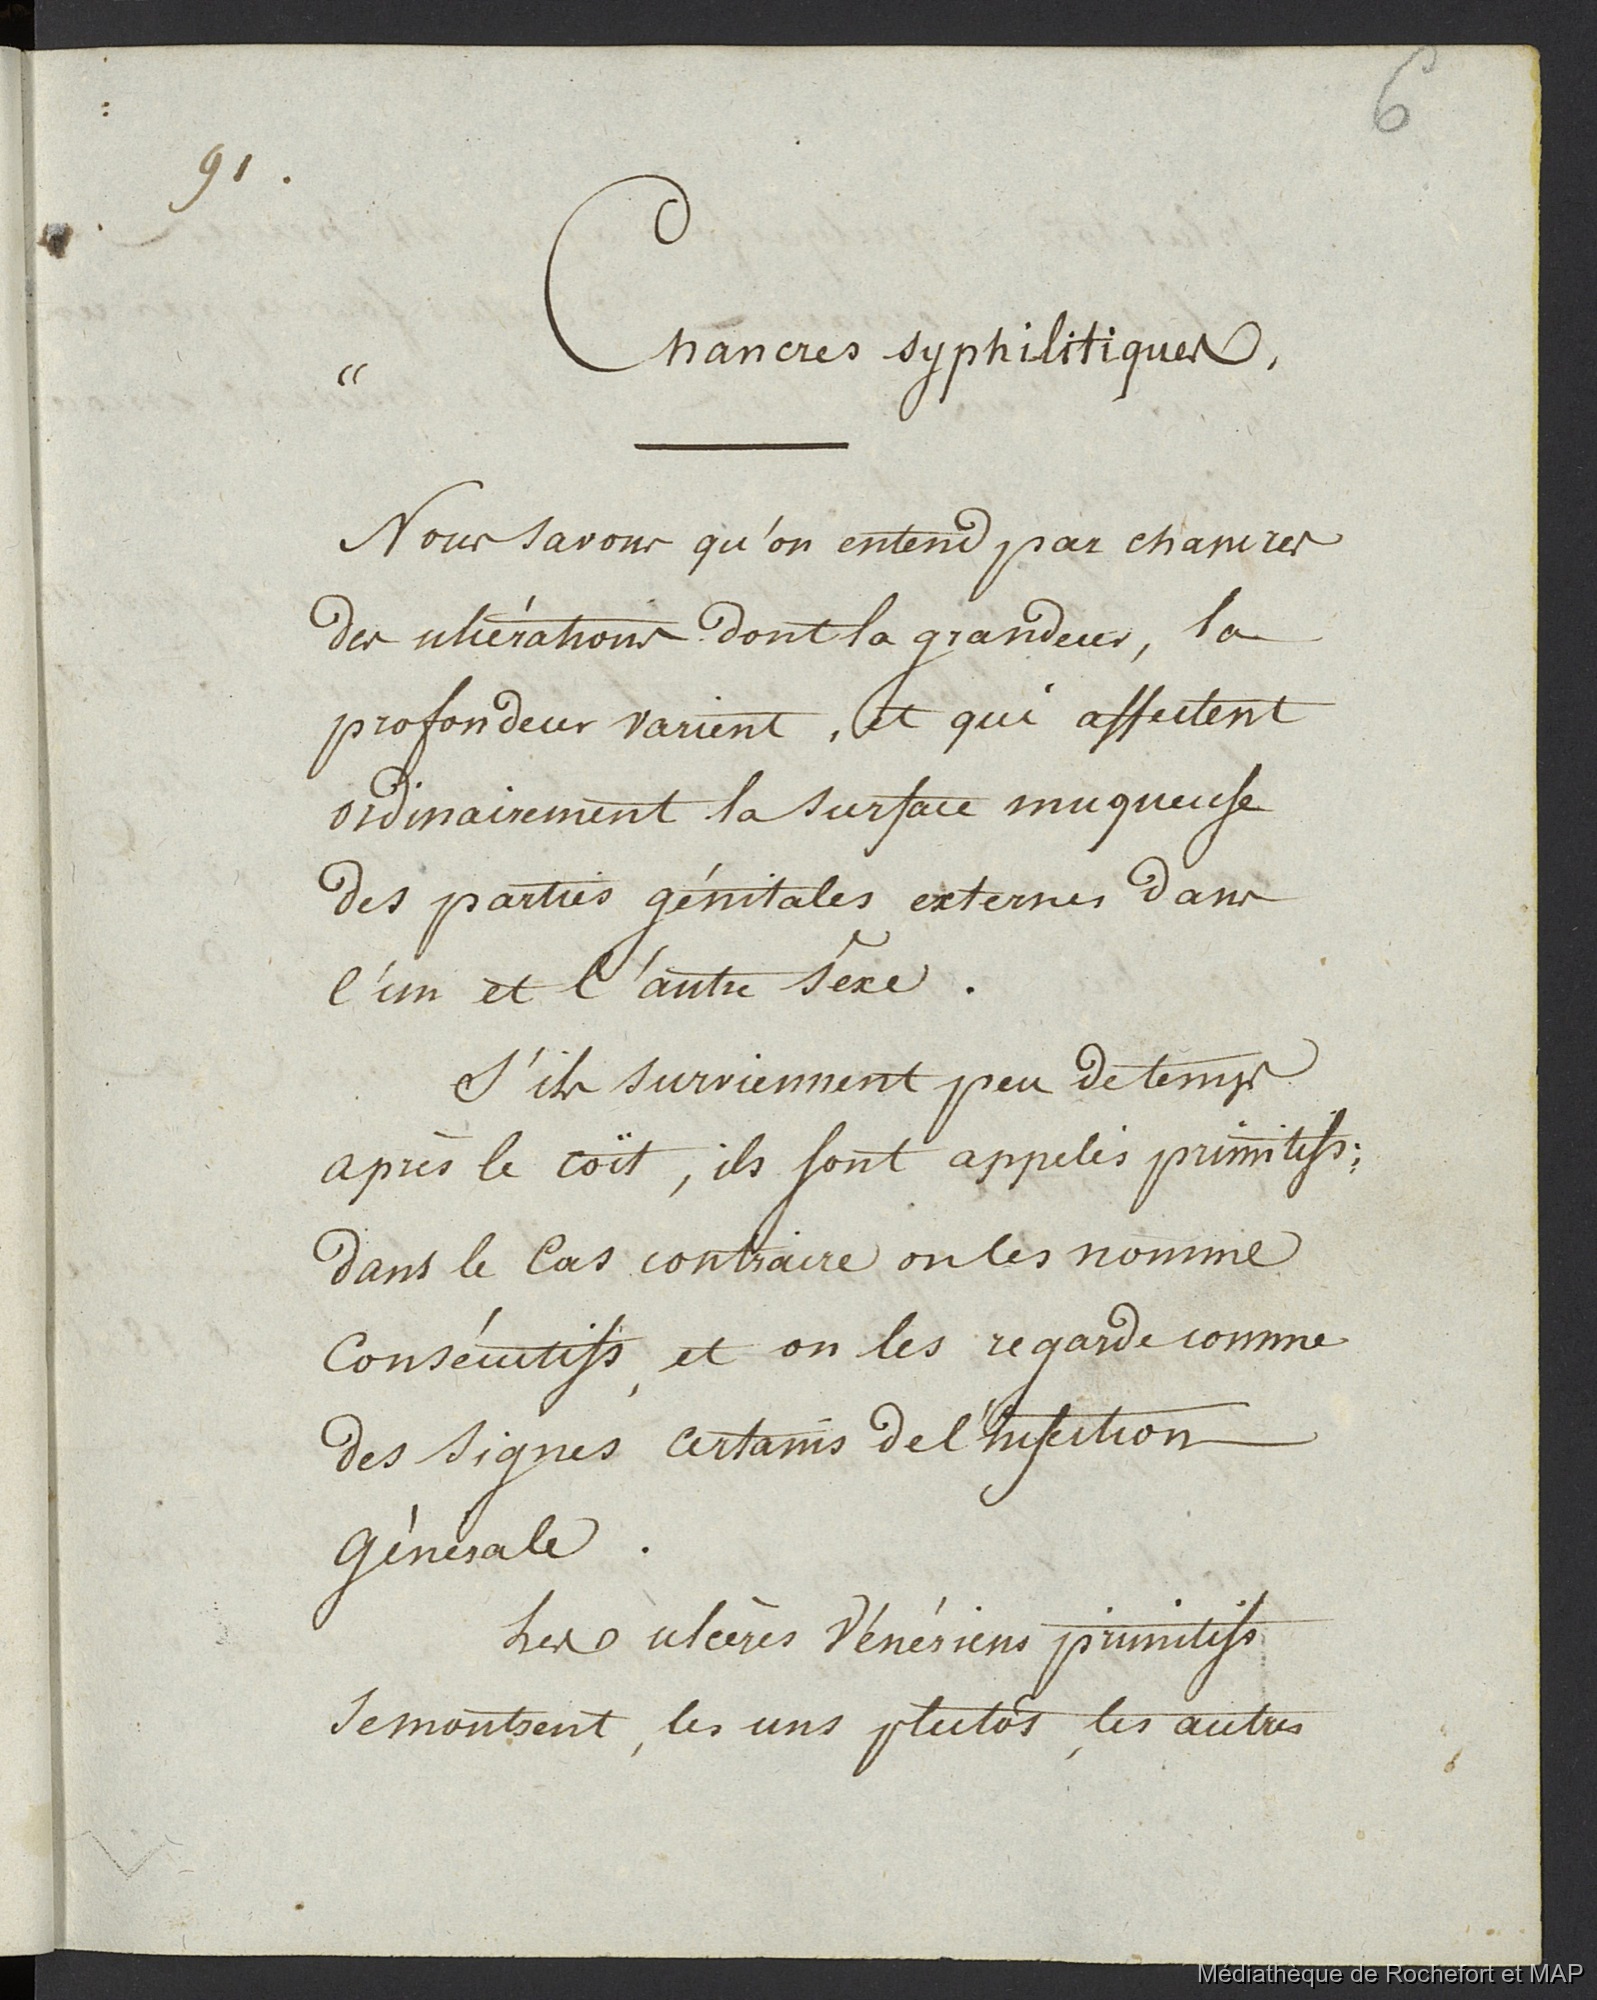 6
91.
"
Chancres syphilitiques,
Nous savons qu'on entend par chancres
des ulcérations dont la grandeur, la
profondeur varient, et qui affectent
ordinairement la surface muqueuse
des parties génitales externes dans
l'un et l'autre sexe.
S'ils surviennent peu de temps
après le coït, ils sont appelés primitifs;
dans le Cas contraire on les nomme
Consécutifs, et on les regarde comme
des signes certains de l'infection
Générale.
Les ulcères Vénériens primitifs
se montrent, les uns plutôt, les autres
Médiathèque de Rochefort et MAP